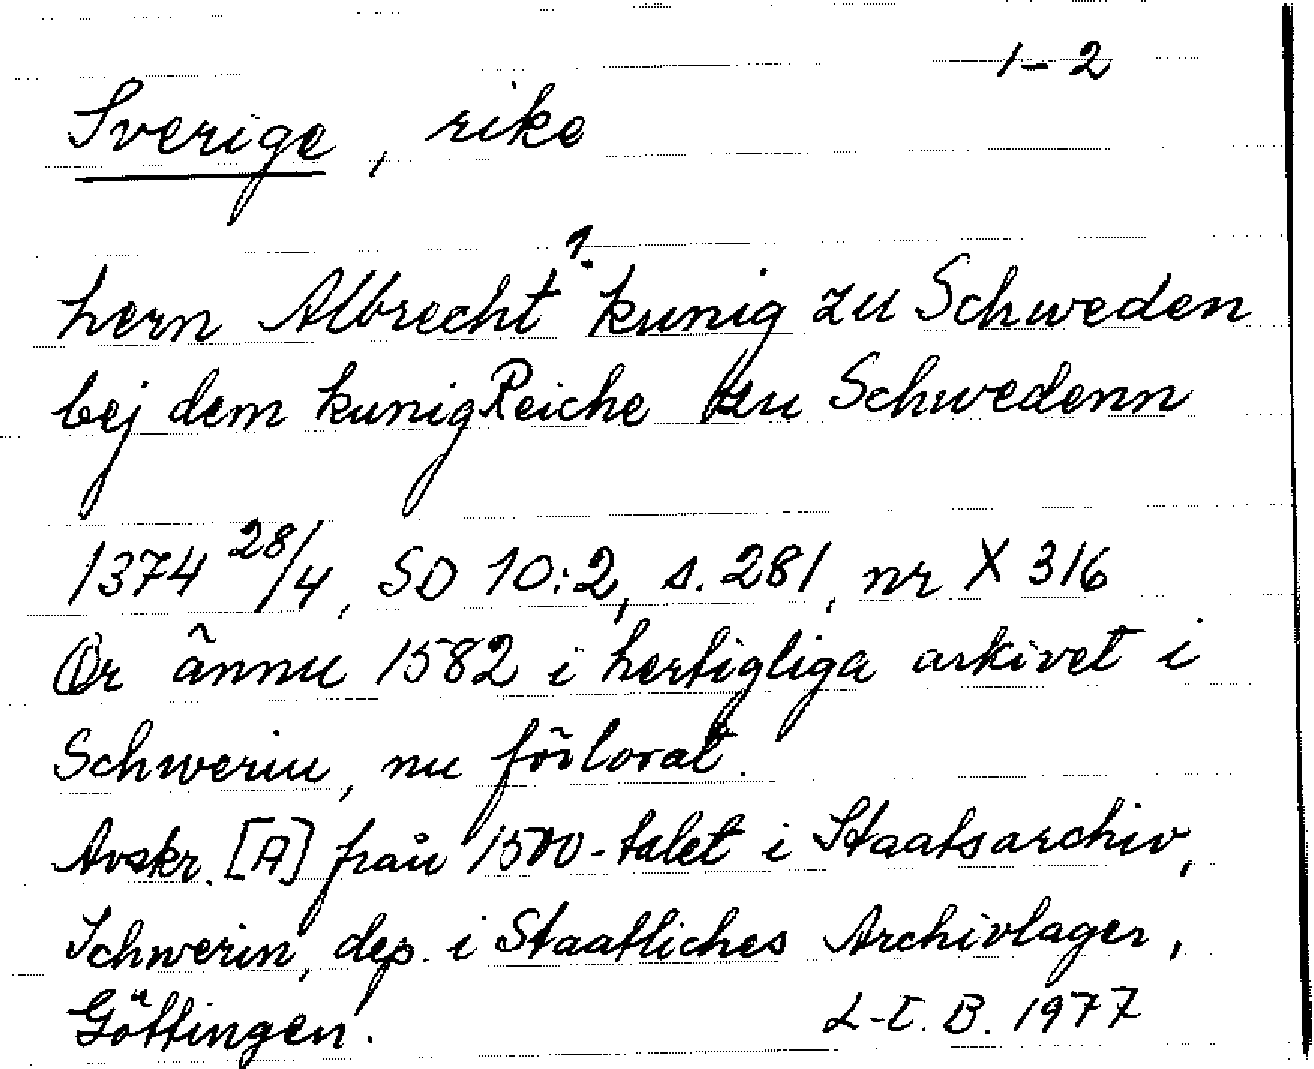 1-2
Sverige, rike
1.
hern Albrecht kunig zu Schweden
bej dem kunigReiche zu Schwedenn
1374 28/4, SD 10:2, s. 281, nr X 316
Or ännu 1582 i hertigliga arkivet i
Schwerin, nu förlorat.
Avskr. [A] från 1500-talet i Staatsarchiv,
Schwerin, dep. i Staatliches Archivlager,
Göttingen.
L-C. B. 1977